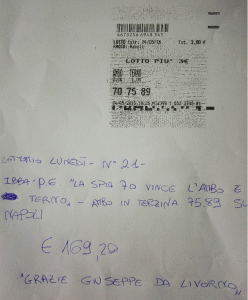 LOTTO PIU' 3€
AMBO TERNO
70 75 89
LUNEDÌ - N° 21 -
"LA SPIA 70 VINCE L'AMBO E
TERNO. - AMBO IN TERZINA 75.89 SU
NAPOLI
€ 169,20
"GRAZIE GIUSEPPE DA LIVORNO"